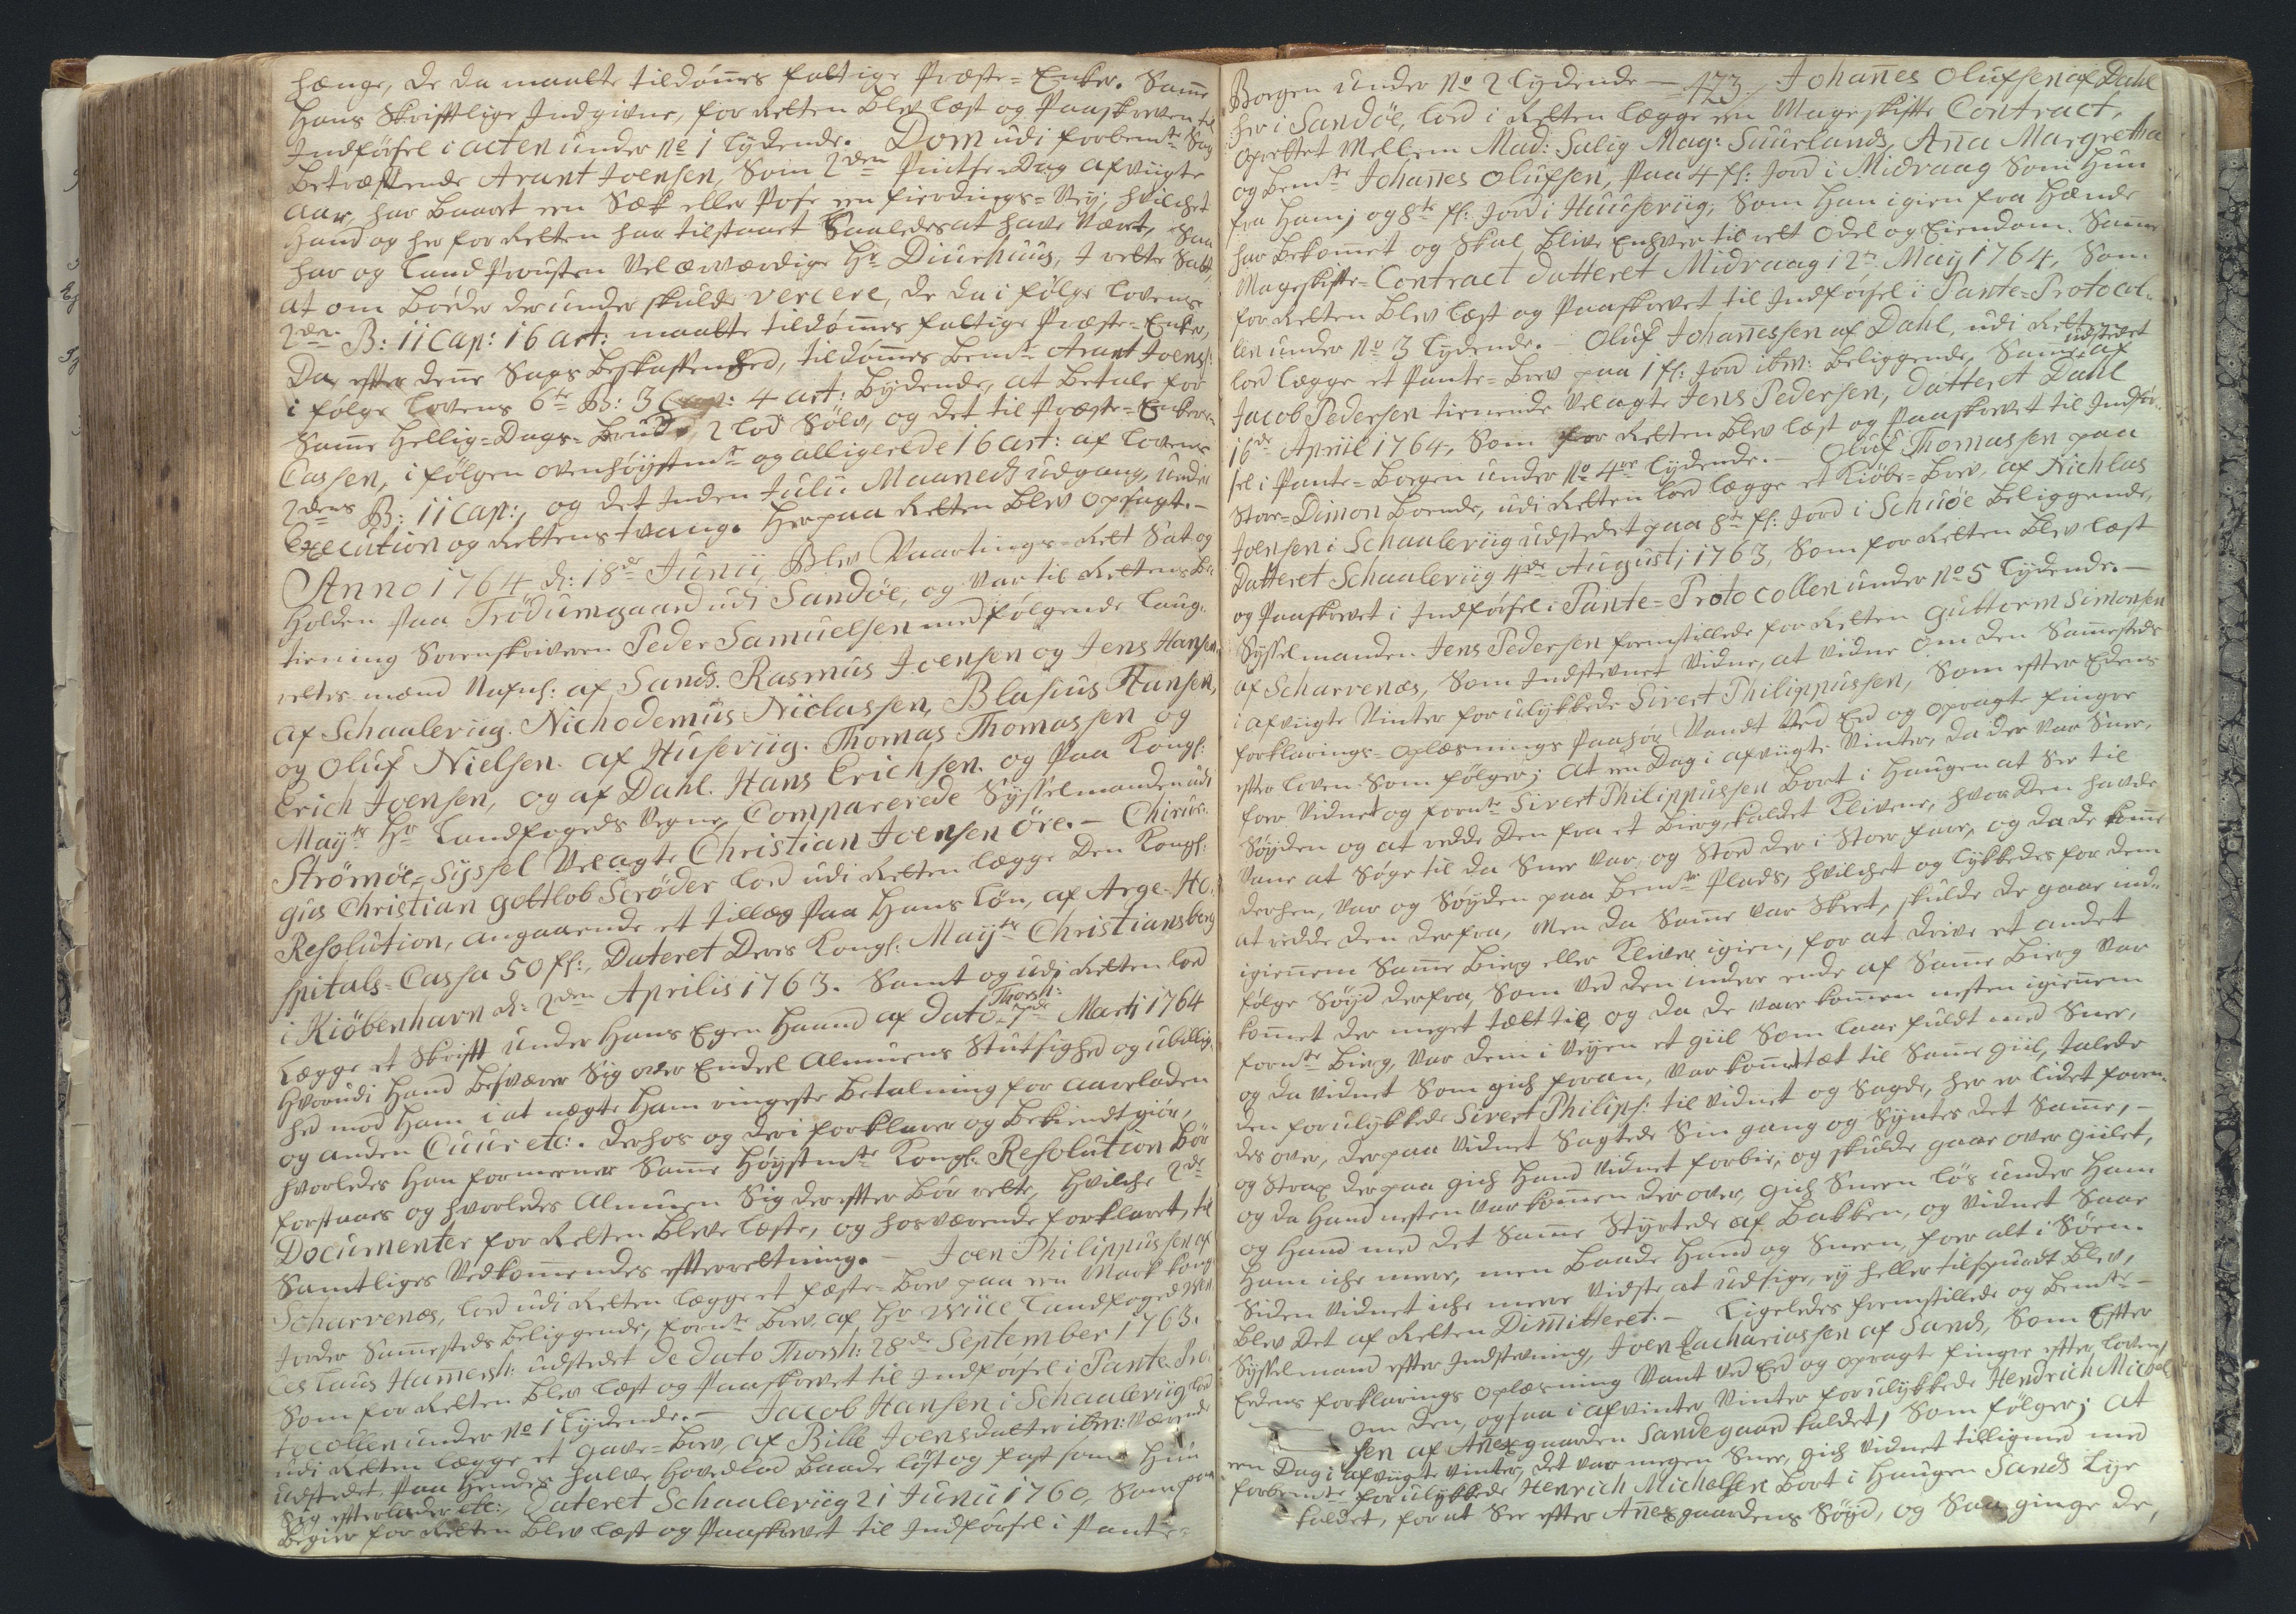 hænge, de da maatte tildömes faltige Præste-Enker. Same
Hans Skrifftlige Indgivne, for Retten blev læst og Paaskreven til
Indförsel i acten under No 1 lydende. Dom udi forbemte Sag
betræffende Arant Joensen, Som 2den Pintse-Dag afvigte
Aar, har baaret een Sæk eller Pose een fierdings-Vey, hvilchet
Hand og her for Retten har tilstaaet Saaledes at have været, Saa
har og Land Prousten Velærværdige Hr Diurhuus, I rette Satt,
at om Böder derunder skulde vercere, de da i fölge Lovens
2den B: 11 Cap: 16 art: maatte tildömes faltige Præste-Enker,
Da efter dene Sags beskaffenhed, tildömes bemte Arant Joens:
i fölge Lovens 6te B: 3 Cap: 4 art: bydende, at betale for
Same Hellig-Dags-brud, 2 lod Sölv, og det til Præste-Enkers
Cassen, i fölgen ovenhöystmte og alligerede 16 art: af Lovens
2dens B: 11 Cap:, og det Inden Julii Maaneds udgang, under
Execution og Rettens tvang. Herpaa Retten blev opsagt.-
Anno 1764 d: 18de Junii, Blev Vaartings-Rett Sat og
holden paa Trödumgaard udi Sandöe, og var til Rettens be-
tiening Sorenskriveren Peder Samuelsen med fölgende Laug-
rettes mænd Nafnl: af Sand. Rasmus Joensen og Jens Hansen,
af Schaaleviig. Nichodemus Niclassen, Blasius Hansen,
og Oluf Nielsen. af Huseviig. Thomas Thomassen og
Erich Joensen, og af Dahl. Hans Erichsen. og Paa Kongl:
Mayts Hr Landfogeds Vegne, Comparerede Sysselmanden udi
Strömöe-Syssel Velagte Christian Joensen Öre.- Chirur-
gus Christian Gottlob Scröder lod udi Retten lægge Den Kongl:
Resolution, angaaende et tillæg paa Hans Lön, af Arge-Ho-
spitals-Cassa 50 fl:, Dateret Deres Kongl: Mayts Christiansborg
i Kiöbenhavn d: 2den Aprilis 1763. Samt og udi Retten lod
Lægge et Skrifft under Hans Egen Haand af Dato Thorsh: 7de Marti 1764
Hvorudi Hand besværer Sig over Endeel Almuens Studsighed og ubillig-
hed mod Ham i at nægte Ham ringeste betalning for Aareladen
og anden Cuur etc:. Derhos og deri forklarer og bekiendtgiör,
hvorledes Han formeener Same Höystmte Kongl: Resolution bör
forstaaes og hvorledes Almuen Sig derefter bör rette, Hvilche 2de
Documenter for Retten bleve læste, og hosværende forklaret, til
Samtliges Vedkomendes efterretning.- Joen Philippussen af
Scharvenæs, lod udi Retten lægge et fæste-brev paa een Mark Kongs
Jorder Samesteds beliggende, formte brev af Hr Wiice Landfoged Wen-
ceslaus Hamersh: udstedet de dato Thorsh: 28de September 1763.
Som for Retten blev læst og Paaskrevet til Indförsel i Pante-Pro-
tocollen under No 1 lydende.- Jacob Hansen i Schaaleviig lod
udi Retten lægge et Gave-brev, af Bille Joensdatter ibm: værende
udstedet, paa Hendes halve Hovedlod baade löst og fast som Hun
Sig efterlader etc:, Dateret Schaaleviig 21 Junii 1760, Som paa
begier for Retten blev læst og Paaskrevet til Indförsel i Pante-
Borgen under No 2 lydende - 173 Johanes Olufsen af Dahl
her i Sandöe, lod i Retten lægge een Mageskifte Contract,
oprettet Mellem Mad: Salig Mag: Suurlands, Ana Margretha
og bemte Johanes Olufsen, paa 4 fl: Jord i Midvaag Som Hun
fra Ham; og 8te fl: Jord i Huuseviig, Som Han igien fra Hænde
har bekomet og Skal blive Enhver til rett Odel og Eiendom. Same
Mageskifte-Contract datteret Midvaag i 2n May 1764, Som
for Retten blev læst og Paaskrevet til Indförsel i Pante-Protocol-
len under No 3 lydende.- Oluf Johanessen af Dahl, udi Retten
lod lægge et Pante-brev paa 1 fl: Jord ibm: beliggende, Same udstedet af
Jacob Pedersen tienende Velagte Jens Pedersen, datteret Dahl
16de April 1764, Som for Retten blev læst og Paaskrevet til Indför-
sel i Pante-Borgen under No 4re lydende.- Oluf Thomassen paa
Store-Dimon boende, udi Retten lod lægge et Kiöbe-brev, af Nichlas
Joensen i Schaaleviig udstedet paa 8te fl: Jord i Schuöe beliggende,
Datteret Schaaleviig 4de Augusti 1763, Som for Retten blev læst
og Paaskrevet i Indförsel i Pante-Protocollen under No 5 lydende.-
Sysselmanden Jens Pedersen fremstillede for Retten Guttorm Simonsen
af Scharvenæs, Som Indstevnet Vidne, at vidne om den Samesteds
i afvigte Vinter forulykkede Sivert Philippussen, Som efter Edens
forklarings-oplæsnings Paahör Vandt Ved Eed og opragte fingre
efter Loven: Som fölger; At een Dag i afvigte Vinter, da der var Snee,
foer Vidnet og formte Sivert Philippussen bort i Haugen at See til
Söyden og at redde den fra et bierg, kaldet Klivene, hvor den havde
vane at Söge til da Snee var, og stod der i Stor fare, og da de kome
derhen, var og Söyden paa bemte Plads, hvilchet og lykkedes for dem
at redde den derfra, Men da Same var Skeet, skulde de gaae ind-
igienem Same bierg eller Kliver igien, for at drive et andet
fölge Söyd derfra, Som ved den indere ende af Same bierg var
komet der meget tætt til, og da de vare komen nesten igienem
formte bierg, var dem i Veyen et giil Som laae fuldt med Snee,
og da vidnet Som gich foran, var komet tæt til Same giil, talede
den forulykkede Sivert Philips: til vidnet og Sagde, her er lidet foren-
des over, derpaa vidnet Sagtede Sin gang og Syntes det Same,-
og Strax derpaa gich Hand vidnet forbie, og skulde gaae over giilet,
og da Hand nesten var komen der over, gich Sneen lös under Ham
og Hand med det Same Styrtede af bakken, og vidnet Saae
Ham iche meere, men baade Hand og Sneen, foer alt i Söen.
Siden Vidnet iche meere vidste at udsige, ey heller tilspurdt blev,
blev det af Retten Dimitteret.- Ligeledes fremstillede og bemte-
Sysselmand efter Indstevning, Joen Zachariassen af Sand, Som Efter
Eedens forklarings oplæsning Vant ved Eed og opragte fingre efter Loven
om den, ogsaa i afvinter Vinter forulykkede Hendrich Michel
sen af Anexgaarden Sandegaard kaldet, Som fölger; At
een Dag i afvigte Vinter, det var megen Snee, gich vidnet tilligemed med
forbemte forulykkede Henrich Michelsen bort i Haugen Sands Lye
kaldet, for at See efter Anexgaardens Söyd, og Saa ginge de,